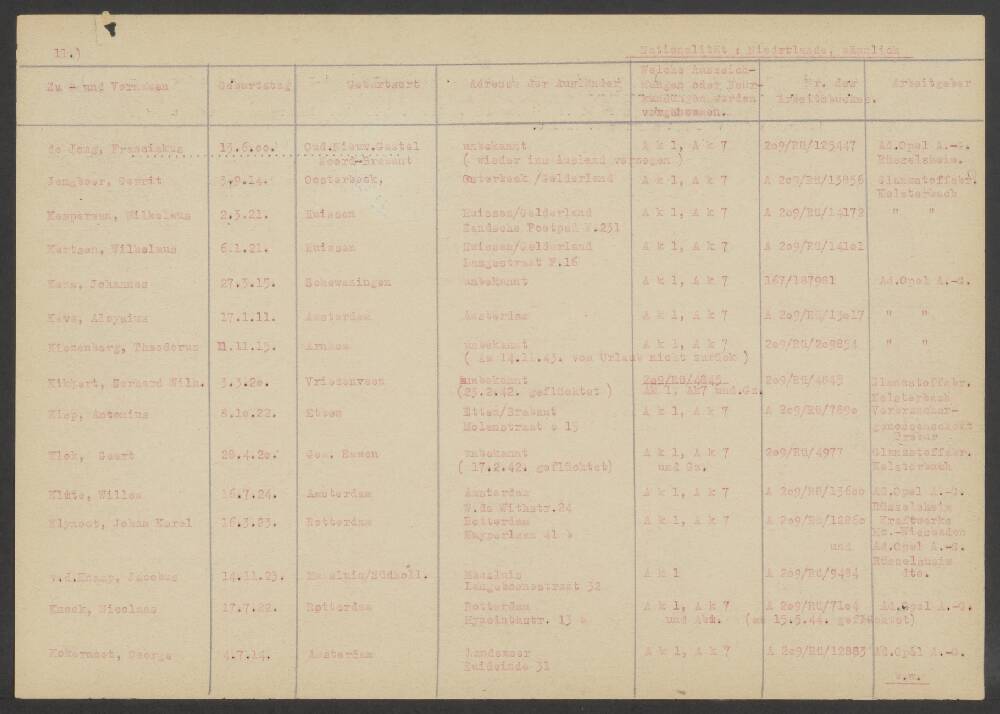 11.)
Nationalität : Niederlande, männlich
Zu - und Vornamen Geburtstag Geburtsort Adresse der Ausländer Welche Auszeich-
nungen oder Beur-
kundungen werden
vorgenommen. Nr. des
Arbeitsbuches. Arbeitgeber
de Jong, Franciskus 13.6.00. Oud.Nieuw.Gastel unbekannt A k 1, A k 7 209/RÜ/125447 Ad.Opel A.-G.
Noord-Brabant ( wieder ins Ausland verzogen ) Rüsselsheim.
Jongboer, Gerrit 3.9.14. Oosterbeek, Osterbeek /Gelderland A k 1, A k 7 A 209/RÜ/13856 Glanzstoffabr.
Kelsterbach
Kasperson, Wilhelmus 2.3.21. Huissen Huissen/Gelderland A k 1, A k 7 A 209/RÜ/14172 " "
Zandsche Postpad N.231
Kersten, Wilhelmus 6.1.21. Huissen Huissen/Gelderland A k 1, A k 7 A 209/RÜ/14101
Langestraat N.16
Johannes 27.3.15. Scheveningen unbekannt A k 1, A k 7 167/187981 Ad.Opel A.-G.
Aloysius 17.1.11. Amsterdam Amsterdam A k 1, A k 7 A 209/RÜ/13017 " "
Theodorus 11.11.15. Arnhem unbekannt A k 1, A k 7 209/RÜ/209854 " "
( Am 14.11.43. vom Urlaub nicht zurück )
Kikkert, Bernard Wilh. 3.3.20. Vriezenveen unbekannt 209/RÜ/4845 209/RÜ/4845 Glanzstoffabr.
(23.2.42. geflüchtet ) Ak 1, Ak7 und.Gz. Kelsterbach
Antonius 8.10.22. Etten Etten/Brabant A k 1, A k 7 A 209/RÜ/7890 Verbraucher-
Molenstraat 15 genossenschaft
Geert 28.4.20. Gem. Emmen unbekannt A k 1, A k 7 209/RÜ/4977 Glanzstoffabr.
( 17.2.42. geflüchtet) und Gz. Kelsterbach
Klüte, Willem 16.7.24. Amsterdam Amsterdam A k 1, A k 7 A 209/RÜ/13600 Ad.Opel A.-G.
W.de Withstr.24 Rüsselsheim
Klymoot, Johan Karel 16.3.23. Rotterdam Rotterdam A k 1, A k 7 A 209/RÜ/12260 Kraftwerke
Kuyperlaan 41 b Mz.-Wiesbaden
und Ad.Opel A.-G.
Rüsselsheim
v.d.Knaap, Jacobus 14.11.23. Maasluis/Südholl. Maasluis A k 1 A 209/RÜ/9484 dto.
Langeboonestraat 32
Knock, Nicolaas 17.7.22. Rotterdam Rotterdam A k 1, A k 7 A 209/RÜ/7104 Ad.Opel A.-G.
Hyacinthstr. 13 b und (am 15.5.44. geflüchtet)
Kokernoot, George 4.7.14. Amsterdam Landsmeer A k 1, A k 7 A 209/RÜ/12883 Ad.Opel A.-G.
Zuideinde 31